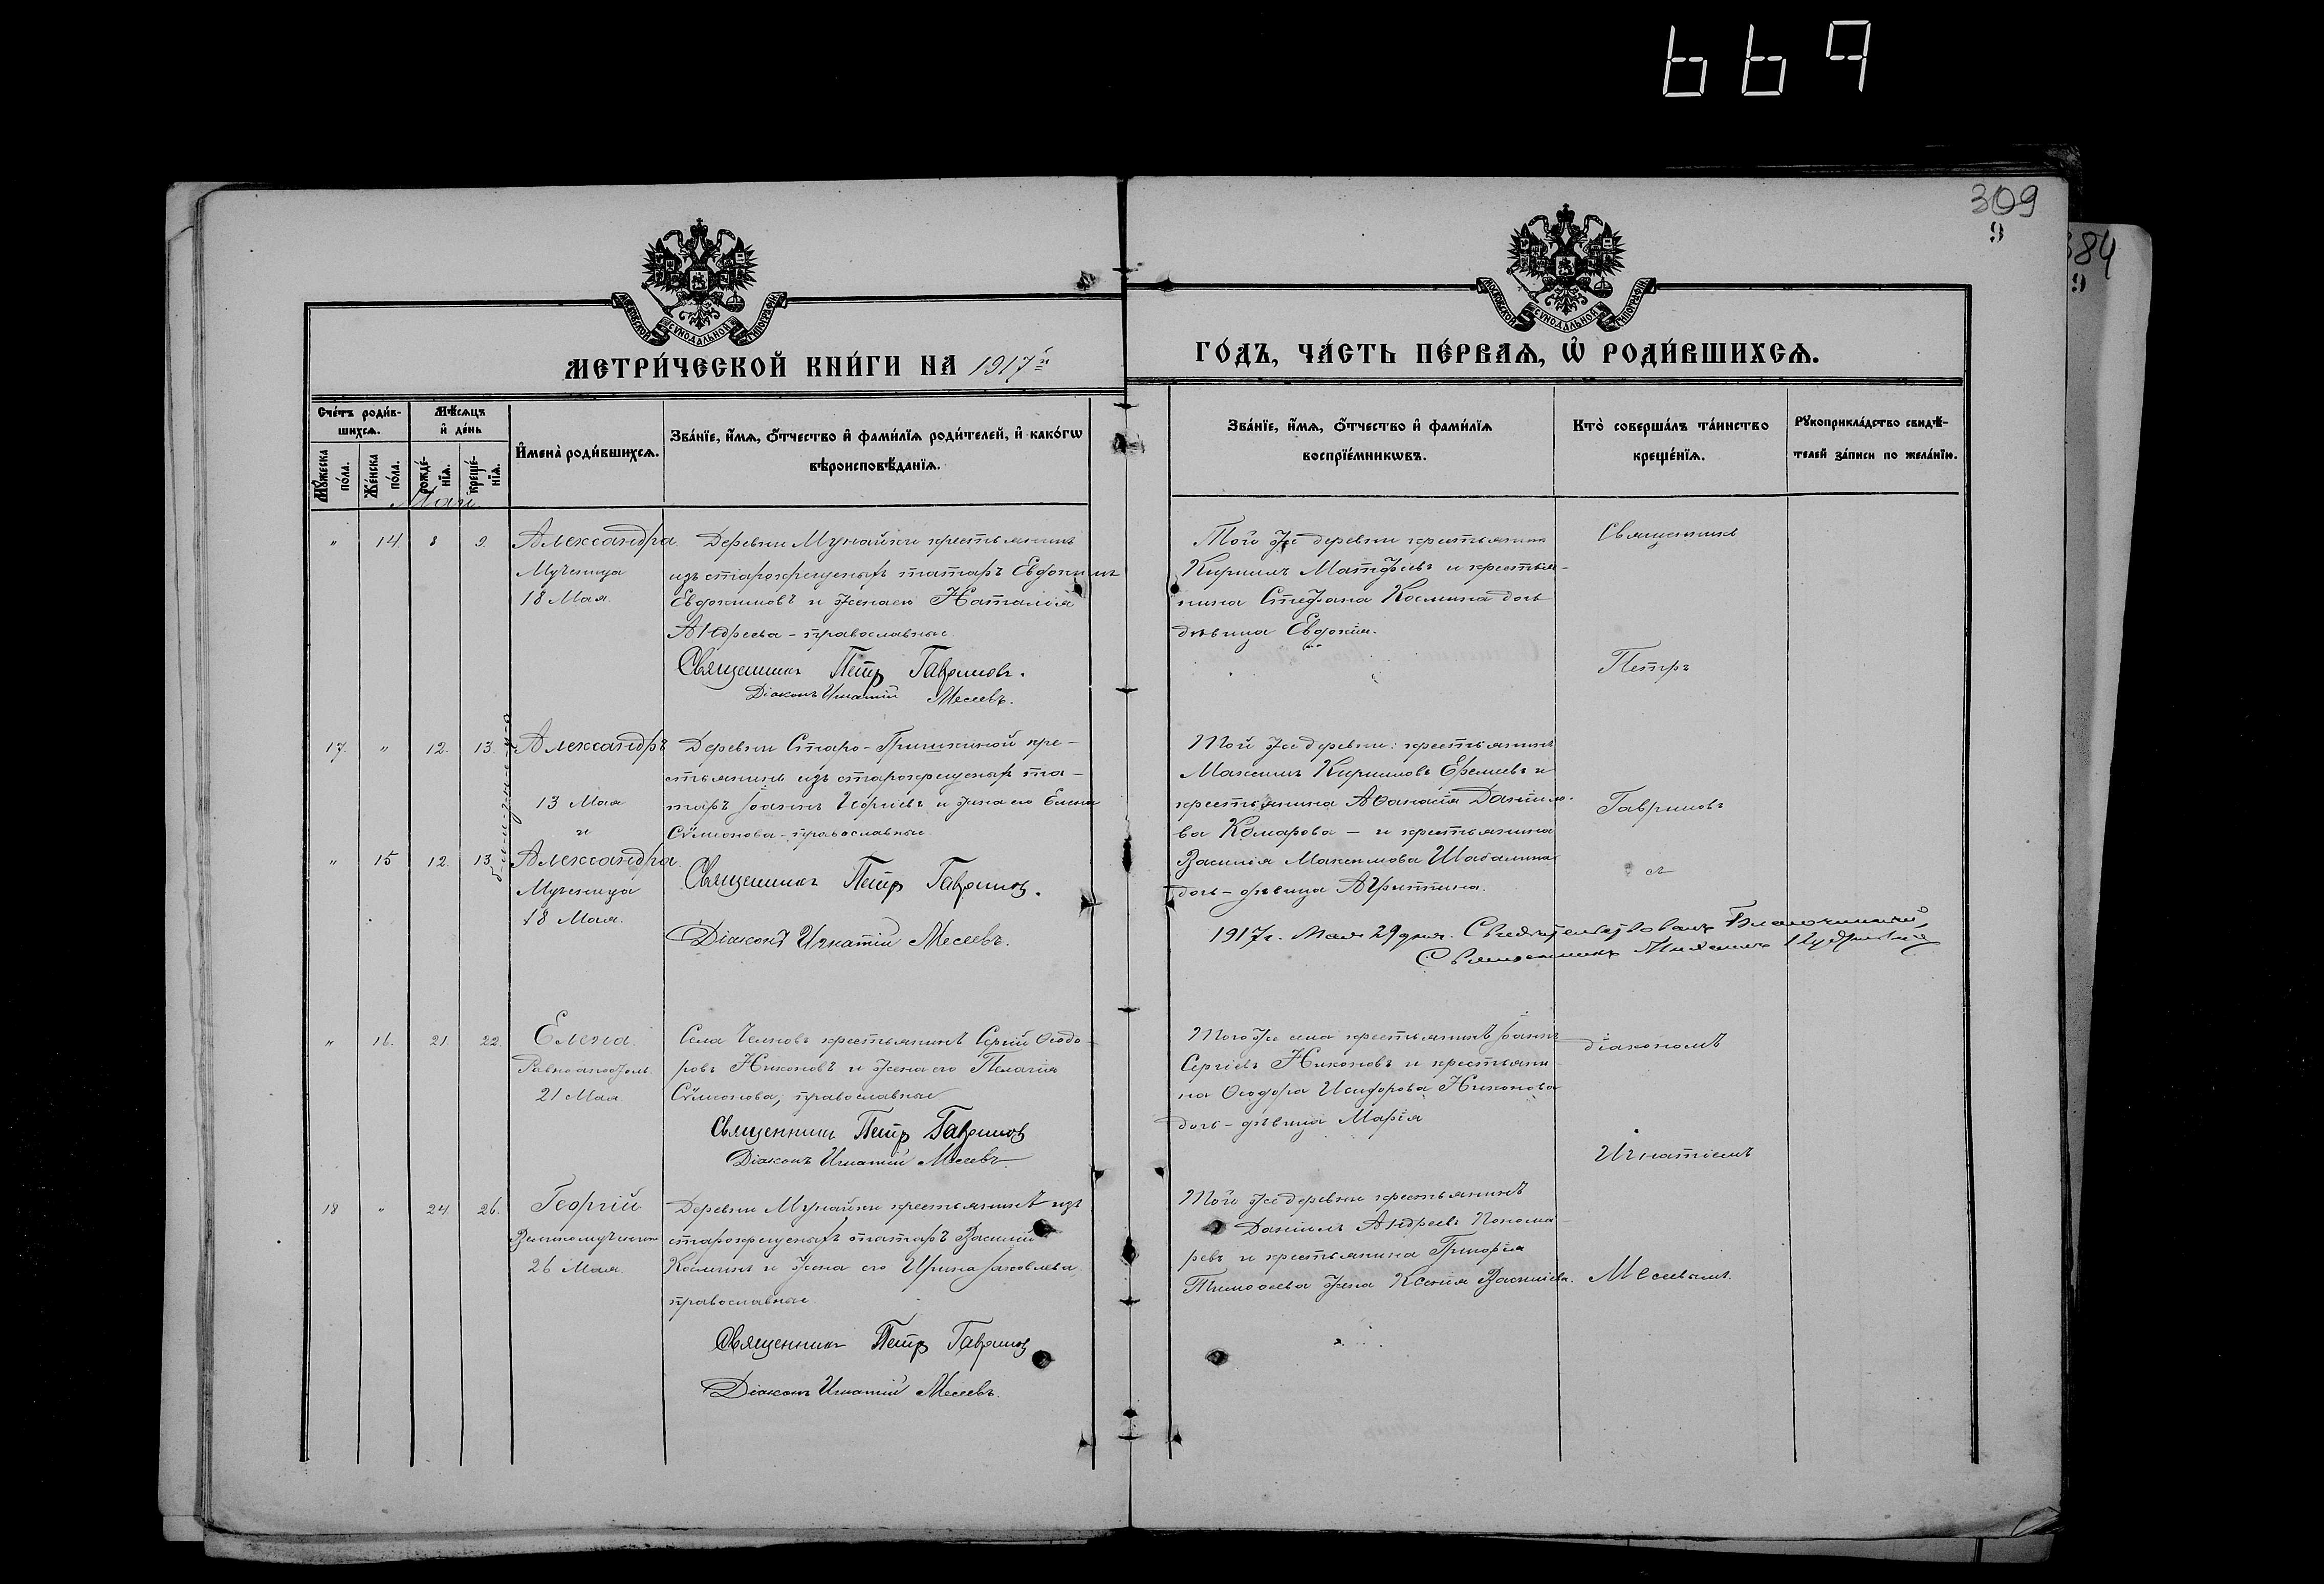 669
309
9
384
9
МОСКОВСКОЙ СѴНОДАЛЬНОЙ ТИПОГРАФІИ
МОСКОВСКОЙ СѴНОДАЛЬНОЙ ТИПОГРАФІИ
МЕТРИ́ЧЕСКОЙ КНИ́ГИ НА 1917й
ГО́ДЪ, ЧА́СТЬ ПЕ́РВАѦ, Ѡ҆ РОДИ́ВШИХСѦ.
Сче́тъ роди́в-
шихсѧ.
Мѣ́сѧцъ
и҆ де́нь
Мꙋ́жеска
по́ла.
Же́нска
по́ла.
рожде́-
нїѧ.
креще́-
нїѧ.
И҆мена̀ роди́вшихсѧ.
Зва́нїе, и҆́мѧ, ѻ҆́тчество и҆ фами́лїѧ роди́телей, и҆ како́гѡ
вѣроисповѣ́данїѧ.
Зва́нїе, и҆́мѧ, ѻ҆́тчество и҆ фами́лїѧ
воспрїе́мникѡвъ.
Кто̀ соверша́лъ та́инство
креще́нїѧ.
Рꙋкоприкла́дство свидѣ́-
телей за́писи по жела́нїю.
Май
" 14. 8 9. Александра
Мученица
18 Мая
Деревни Мунайки крестьянинъ
изъ старокрещеныхъ татаръ Евдокимъ
Евдокимовъ и жена его Наталія
Андреева - православные
Священникъ Петр Гавриловъ.
Діаконъ Игнатій Месеевъ.
Той же деревни крестьянинъ
Кириллъ Матфіевъ и крестья-
нина Стефана Космина дочь
дѣвица Евдокія.
Священникъ
Петръ
17. " 12. 13. Александръ
13 Мая
и
" 15 12. 13. Александра.
Мученица
18 Мая.
близнецы
Деревни Старо-Гришкиной кре-
стьянинъ изъ старокрещеныхъ та-
таръ Іоаннъ Георгіевъ и жена его Елена
Сѵмеонова - православные
Священникъ Петр Гаврилов.
Діаконъ Игнатій Месеевъ.
Той же деревни: крестьянинъ
Максимъ Кирилловъ Еремеевъ и
крестьянина Аѳанасія Данило-
ва Комарова - и крестьянина
Василія Максимова Шабалина
дочь - дѣвица Агриппина.
Гавриловъ
съ
1917 г. Мая 29 дня. Свидѣтельствовалъ Благочинный,
Священникъ Михаилъ
" 16. 21. 22. Елена.
Равноапостол.
21 Мая
Села Челновъ крестьянинъ Сергій Ѳеодо-
ровъ Никоновъ и жена его Пелагія
Сѵмеонова, православные
Священникъ Петр Гаврилов
Діаконъ Игнатій Месеевъ
Того же села крестьянинъ Іоаннъ
Сергіевъ Никоновъ и крестьяни-
на Ѳеодора Исидорова Никонова
дочь - дѣвица Марія
діакономъ
Игнатіемъ
18 " 24 26. Георгій
Великомученик
26 Мая.
Деревни Мунайки крестьянинъ изъ
старокрещеныхъ татаръ Василій
Косминъ и жена его Ирина Іаковлева,
православные
Священникъ Петр Гаврилов
Діаконъ Игнатій Месеевъ.
Той же деревни крестьянинъ
Даніилъ Андреевъ Понома-
ревъ и крестьянина Григорія
Тимоѳеева жена Ксенія Васильева.
Месеевымъ.